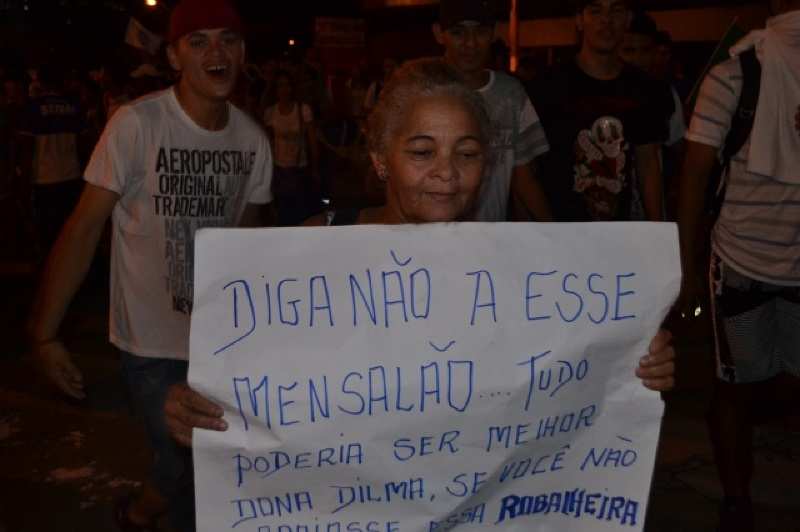 AEROPOSTALE
ORIGINAL
TRADEMARK
DIGA NÃO A ESSE
MENSALÃO.... TUDO
PODERIA SER MELHOR
DONA DILMA, SE VOCÊ NÃO
APOIASSE ESSA ROBALHEIRA